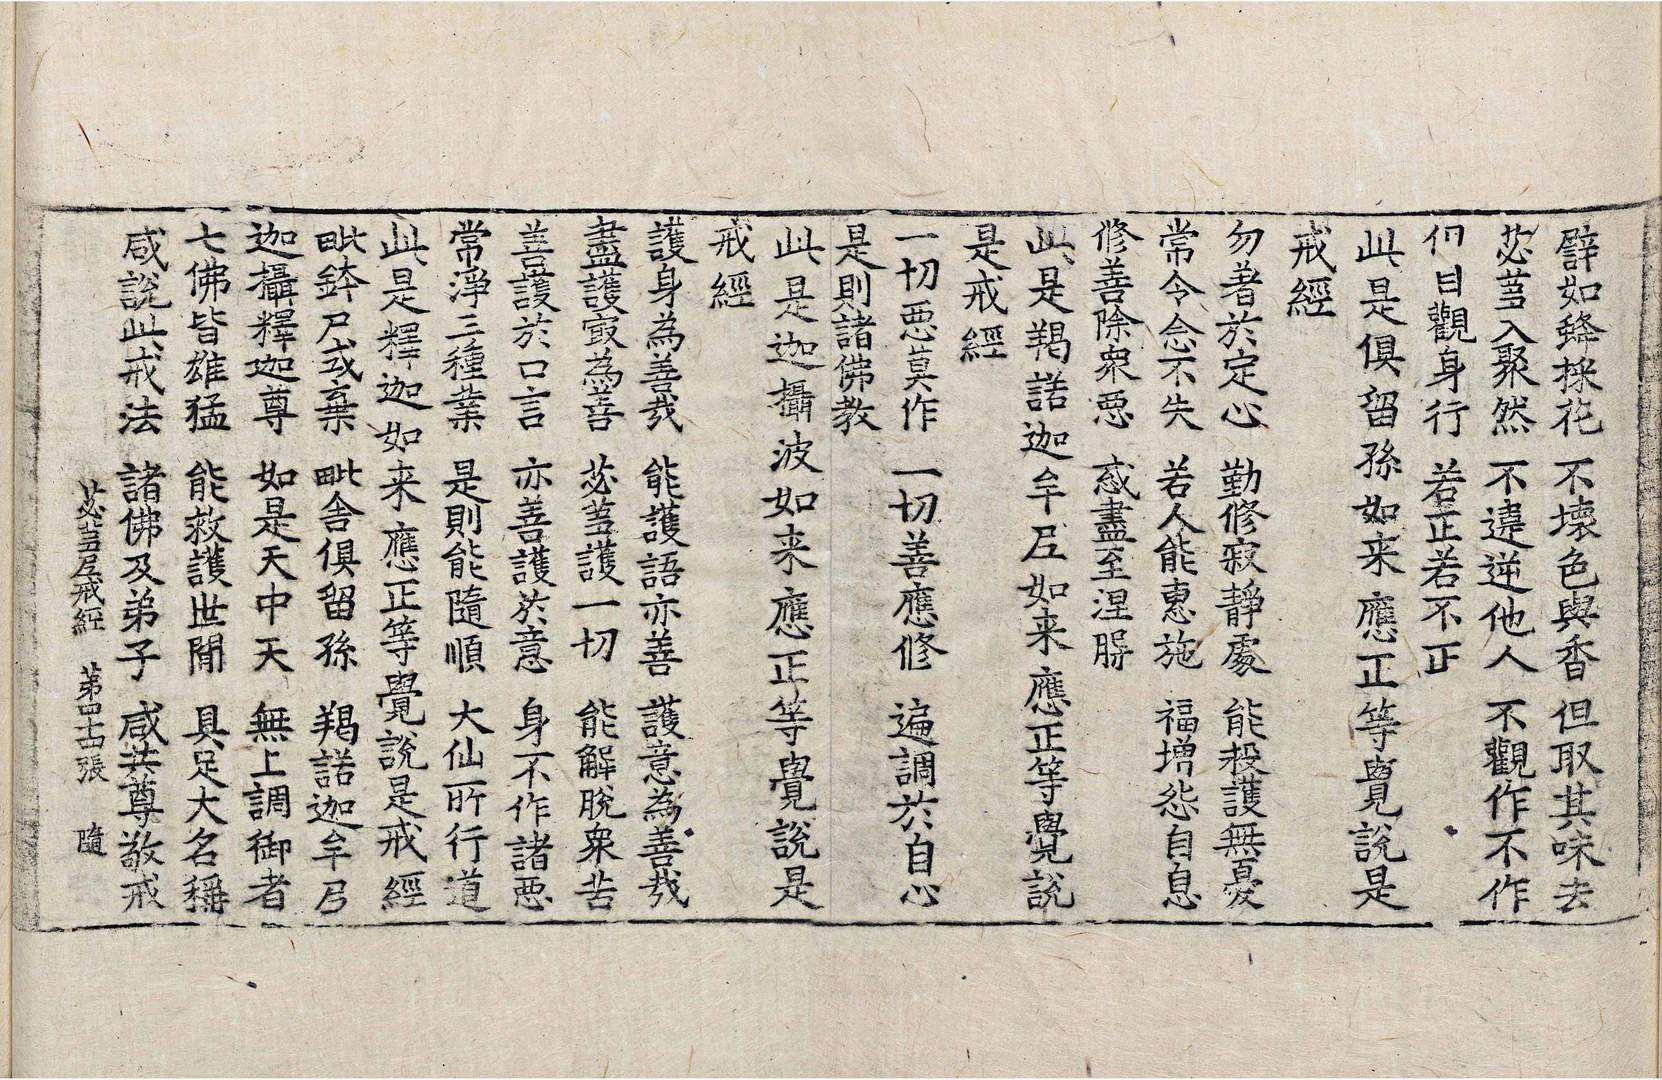 譬如蜂採花　不壞色與香　但取其味去
苾蒭入聚然　不違逆他人　不觀作不作
但自觀身行　若正若不正
此是俱留孫如来應正等覺說是
戒經
勿著於定心　勤修寂靜處　能救護無憂
常令念不失　若人能惠施　福增怨自息
修善除衆惡　惑盡至涅槃
此是羯諾迦牟尼如来應正等覺說
是戒經
一切惡莫作　一切善應修　遍調於自心
是則諸佛教
此是迦攝波如来應正等覺說是
戒經
護身為善哉　能護語亦善　護意為善哉
盡護寂為善　苾蒭護一切　能解脫衆苦
善護於口言　亦善護於意　身不作諸惡
常淨三種業　是則能隨順　大仙所行道
此是釋迦如来應正等覺說是戒經
毗鉢尸或棄　毗舍俱留孫　羯諾迦牟尼
迦攝釋迦尊　如是天中天　無上調御者
七佛皆雄猛　能救護世間　具足大名稱
咸說此戒法　諸佛及弟子　咸共尊敬戒
苾蒭尼戒經　第四十四張　隨